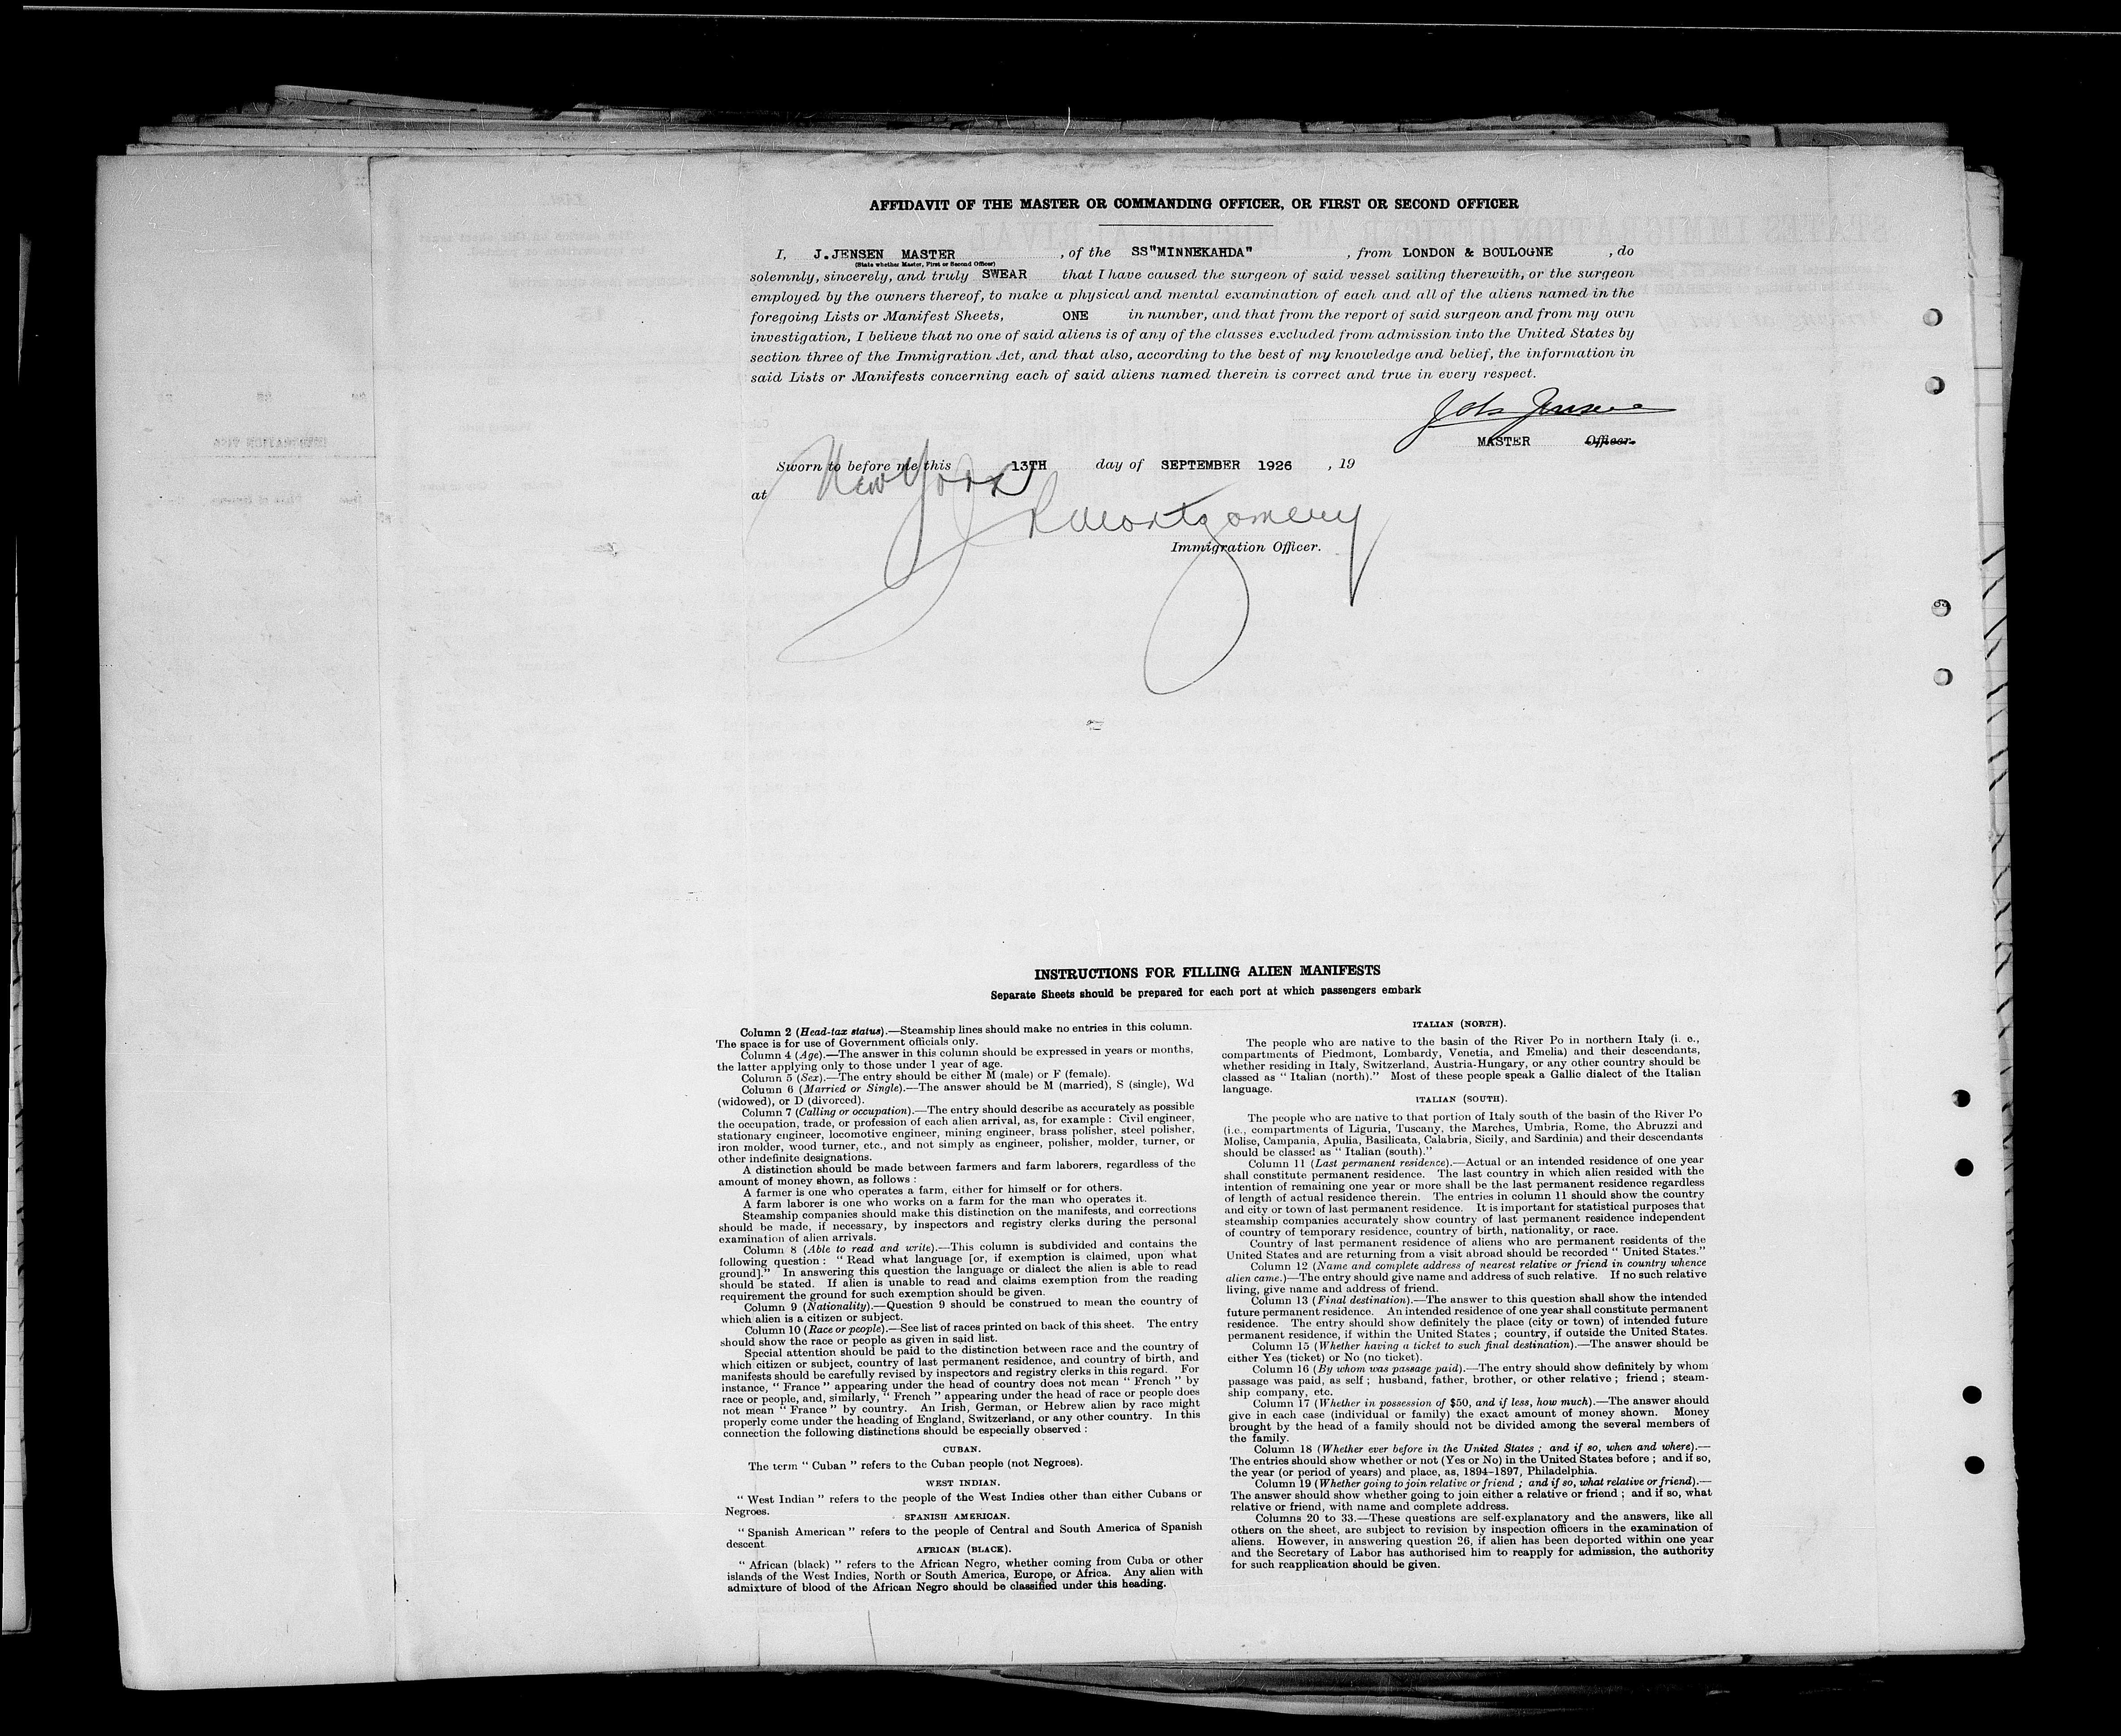 AFFIDAVIT OF THE MASTER OR COMMANDING OFFICER, OR FIRST OR SECOND OFFICER
I, J.JENSEN MASTER, of the SS"MINNEKAHDA", from LONDON & BOULOGNE, do
(State whether Master, First or Second Officer)
solemnly, sincerely, and truly SWEAR that I have caused the surgeon of said vessel sailing therewith, or the surgeon
employed by the owners thereof, to make a physical and mental examination of each and all of the aliens named in the
foregoing Lists or Manifest Sheets, ONE in number, and that from the report of said surgeon and from my own
investigation, I believe that no one of said aliens is of any of the classes excluded from admission into the United States by
section three of the Immigration Act, and that also, according to the best of my knowledge and belief, the information in
said Lists or Manifests concerning each of said aliens named therein is correct and true in every respect.
Jensen
MASTER Officer.
Sworn to before me this 13TH day of SEPTEMBER 1926, 19
at New York
Montgomery
Immigration Officer.
INSTRUCTIONS FOR FILLING ALIEN MANIFESTS
Separate Sheets should be prepared for each port at which passengers embark
Column 2 (Head-tax status).—Steamship lines should make no entries in this column.
The space is for use of Government officials only.
Column 4 (Age).—The answer in this column should be expressed in years or months,
the latter applying only to those under 1 year of age.
Column 5 (Sex).—The entry should be either M (male) or F (female).
Column 6 (Married or Single).—The answer should be M (married), S (single), Wd
(widowed), or D (divorced).
Column 7 (Calling or occupation).—The entry should describe as accurately as possible
the occupation, trade, or profession of each alien arrival, as, for example : Civil engineer,
stationary engineer, locomotive engineer, mining engineer, brass polisher, steel polisher,
iron molder, wood turner, etc., and not simply as engineer, polisher, molder, turner, or
other indefinite designations.
A distinction should be made between farmers and farm laborers, regardless of the
amount of money shown, as follows :
A farmer is one who operates a farm, either for himself or for others.
A farm laborer is one who works on a farm for the man who operates it.
Steamship companies should make this distinction on the manifests, and corrections
should be made, if necessary, by inspectors and registry clerks during the personal
examination of alien arrivals.
Column 8 (Able to read and write).—This column is subdivided and contains the
following question : " Read what language [or, if exemption is claimed, upon what
ground]." In answering this question the language or dialect the alien is able to read
should be stated. If alien is unable to read and claims exemption from the reading
requirement the ground for such exemption should be given.
Column 9 (Nationality).—Question 9 should be construed to mean the country of
which alien is a citizen or subject.
Column 10 (Race or people).—See list of races printed on back of this sheet. The entry
should show the race or people as given in said list.
Special attention should be paid to the distinction between race and the country of
which citizen or subject, country of last permanent residence, and country of birth, and
manifests should be carefully revised by inspectors and registry clerks in this regard. For
instance, " France " appearing under the head of country does not mean " French " by
race or people, and, similarly, " French " appearing under the head of race or people does
not mean " France " by country. An Irish, German, or Hebrew alien by race might
properly come under the heading of England, Switzerland, or any other country. In this
connection the following distinctions should be especially observed :
CUBAN.
The term " Cuban " refers to the Cuban people (not Negroes).
WEST INDIAN.
" West Indian " refers to the people of the West Indies other than either Cubans or
Negroes.
SPANISH AMERICAN.
" Spanish American " refers to the people of Central and South America of Spanish
descent.
AFRICAN (BLACK).
" African (black) " refers to the African Negro, whether coming from Cuba or other
islands of the West Indies, North or South America, Europe, or Africa. Any alien with
admixture of blood of the African Negro should be classified under this heading.
ITALIAN (NORTH).
The people who are native to the basin of the River Po in northern Italy (i. e.,
compartments of Piedmont, Lombardy, Venetia, and Emelia) and their descendants,
whether residing in Italy, Switzerland, Austria-Hungary, or any other country should be
classed as " Italian (north)." Most of these people speak a Gallic dialect of the Italian
language.
ITALIAN (SOUTH).
The people who are native to that portion of Italy south of the basin of the River Po
(i.e., compartments of Liguria, Tuscany, the Marches, Umbria, Rome, the Abruzzi and
Molise, Campania, Apulia, Basilicata, Calabria, Sicily, and Sardinia) and their descendants
should be classed as " Italian (south)."
Column 11 (Last permanent residence).—Actual or an intended residence of one year
shall constitute permanent residence. The last country in which alien resided with the
intention of remaining one year or more shall be the last permanent residence regardless
of length of actual residence therein. The entries in column 11 should show the country
and city or town of last permanent residence. It is important for statistical purposes that
steamship companies accurately show country of last permanent residence independent
of country of temporary residence, country of birth, nationality, or race.
Country of last permanent residence of aliens who are permanent residents of the
United States and are returning from a visit abroad should be recorded " United States."
Column 12 (Name and complete address of nearest relative or friend in country whence
alien came.)—The entry should give name and address of such relative. If no such relative
living, give name and address of friend.
Column 13 (Final destination).—The answer to this question shall show the intended
future permanent residence. An intended residence of one year shall constitute permanent
residence. The entry should show definitely the place (city or town) of intended future
permanent residence, if within the United States ; country, if outside the United States.
Column 15 (Whether having a ticket to such final destination).—The answer should be
either Yes (ticket) or No (no ticket).
Column 16 (By whom was passage paid).—The entry should show definitely by whom
passage was paid, as self ; husband, father, brother, or other relative ; friend ; steam-
ship company, etc.
Column 17 (Whether in possession of $50, and if less, how much).—The answer should
give in each case (individual or family) the exact amount of money shown. Money
brought by the head of a family should not be divided among the several members of
the family.
Column 18 (Whether ever before in the United States ; and if so, when and where).—
The entries should show whether or not (Yes or No) in the United States before ; and if so,
the year (or period of years) and place, as, 1894-1897, Philadelphia.
Column 19 (Whether going to join relative or friend ; and if so, what relative or friend).—
The answer should show whether going to join either a relative or friend ; and if so, what
relative or friend, with name and complete address.
Columns 20 to 33.—These questions are self-explanatory and the answers, like all
others on the sheet, are subject to revision by inspection officers in the examination of
aliens. However, in answering question 26, if alien has been deported within one year
and the Secretary of Labor has authorised him to reapply for admission, the authority
for such reapplication should be given.